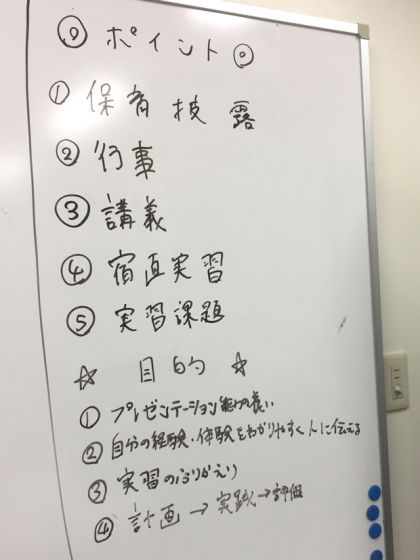 ◎ ポイント ◎
① 保育披露
② 行事
③ 講義
④ 宿直実習
⑤ 実習課題
☆ 目的 ☆
① プレゼンテーション
② 自分の経験・体験をわかりやすく人に伝える
③ 実習のふりかえり
④ 計画→実践→評価